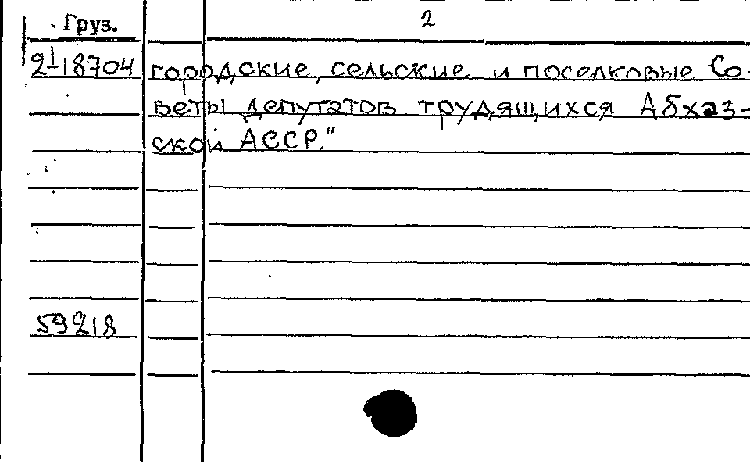 Груз.
2
2-18704
городские, сельские и поселковые Со-
веты депутатов трудящихся Абхаз-
ской АССР."
59218